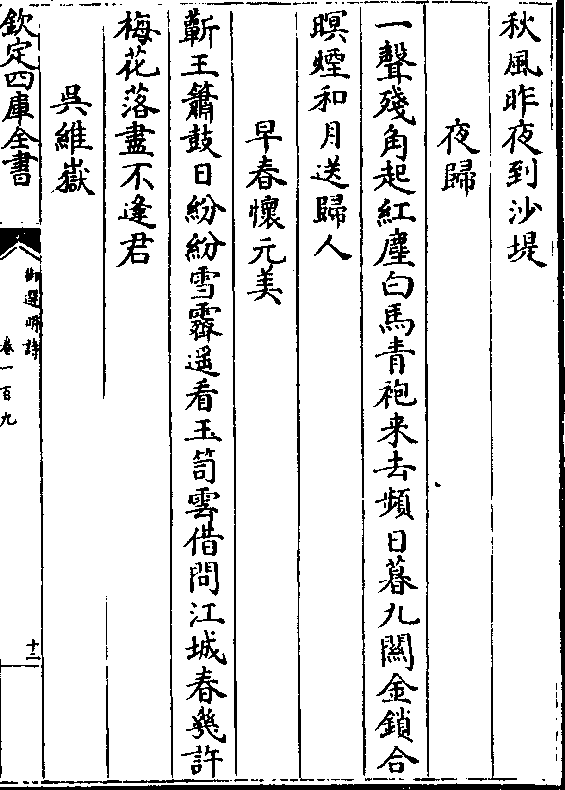 秋風昨夜到沙堤
夜歸
一聲殘角起紅塵白馬青袍来去頻日暮九闗金鎖合
暝煙和月送歸人
早春懷元美
蘄王簫鼓日紛紛雪霽遥看玉笥雲借問江城春幾許
梅花落盡不逢君
吳維嶽
欽定四庫全書
御選明詩
卷一百九
十三